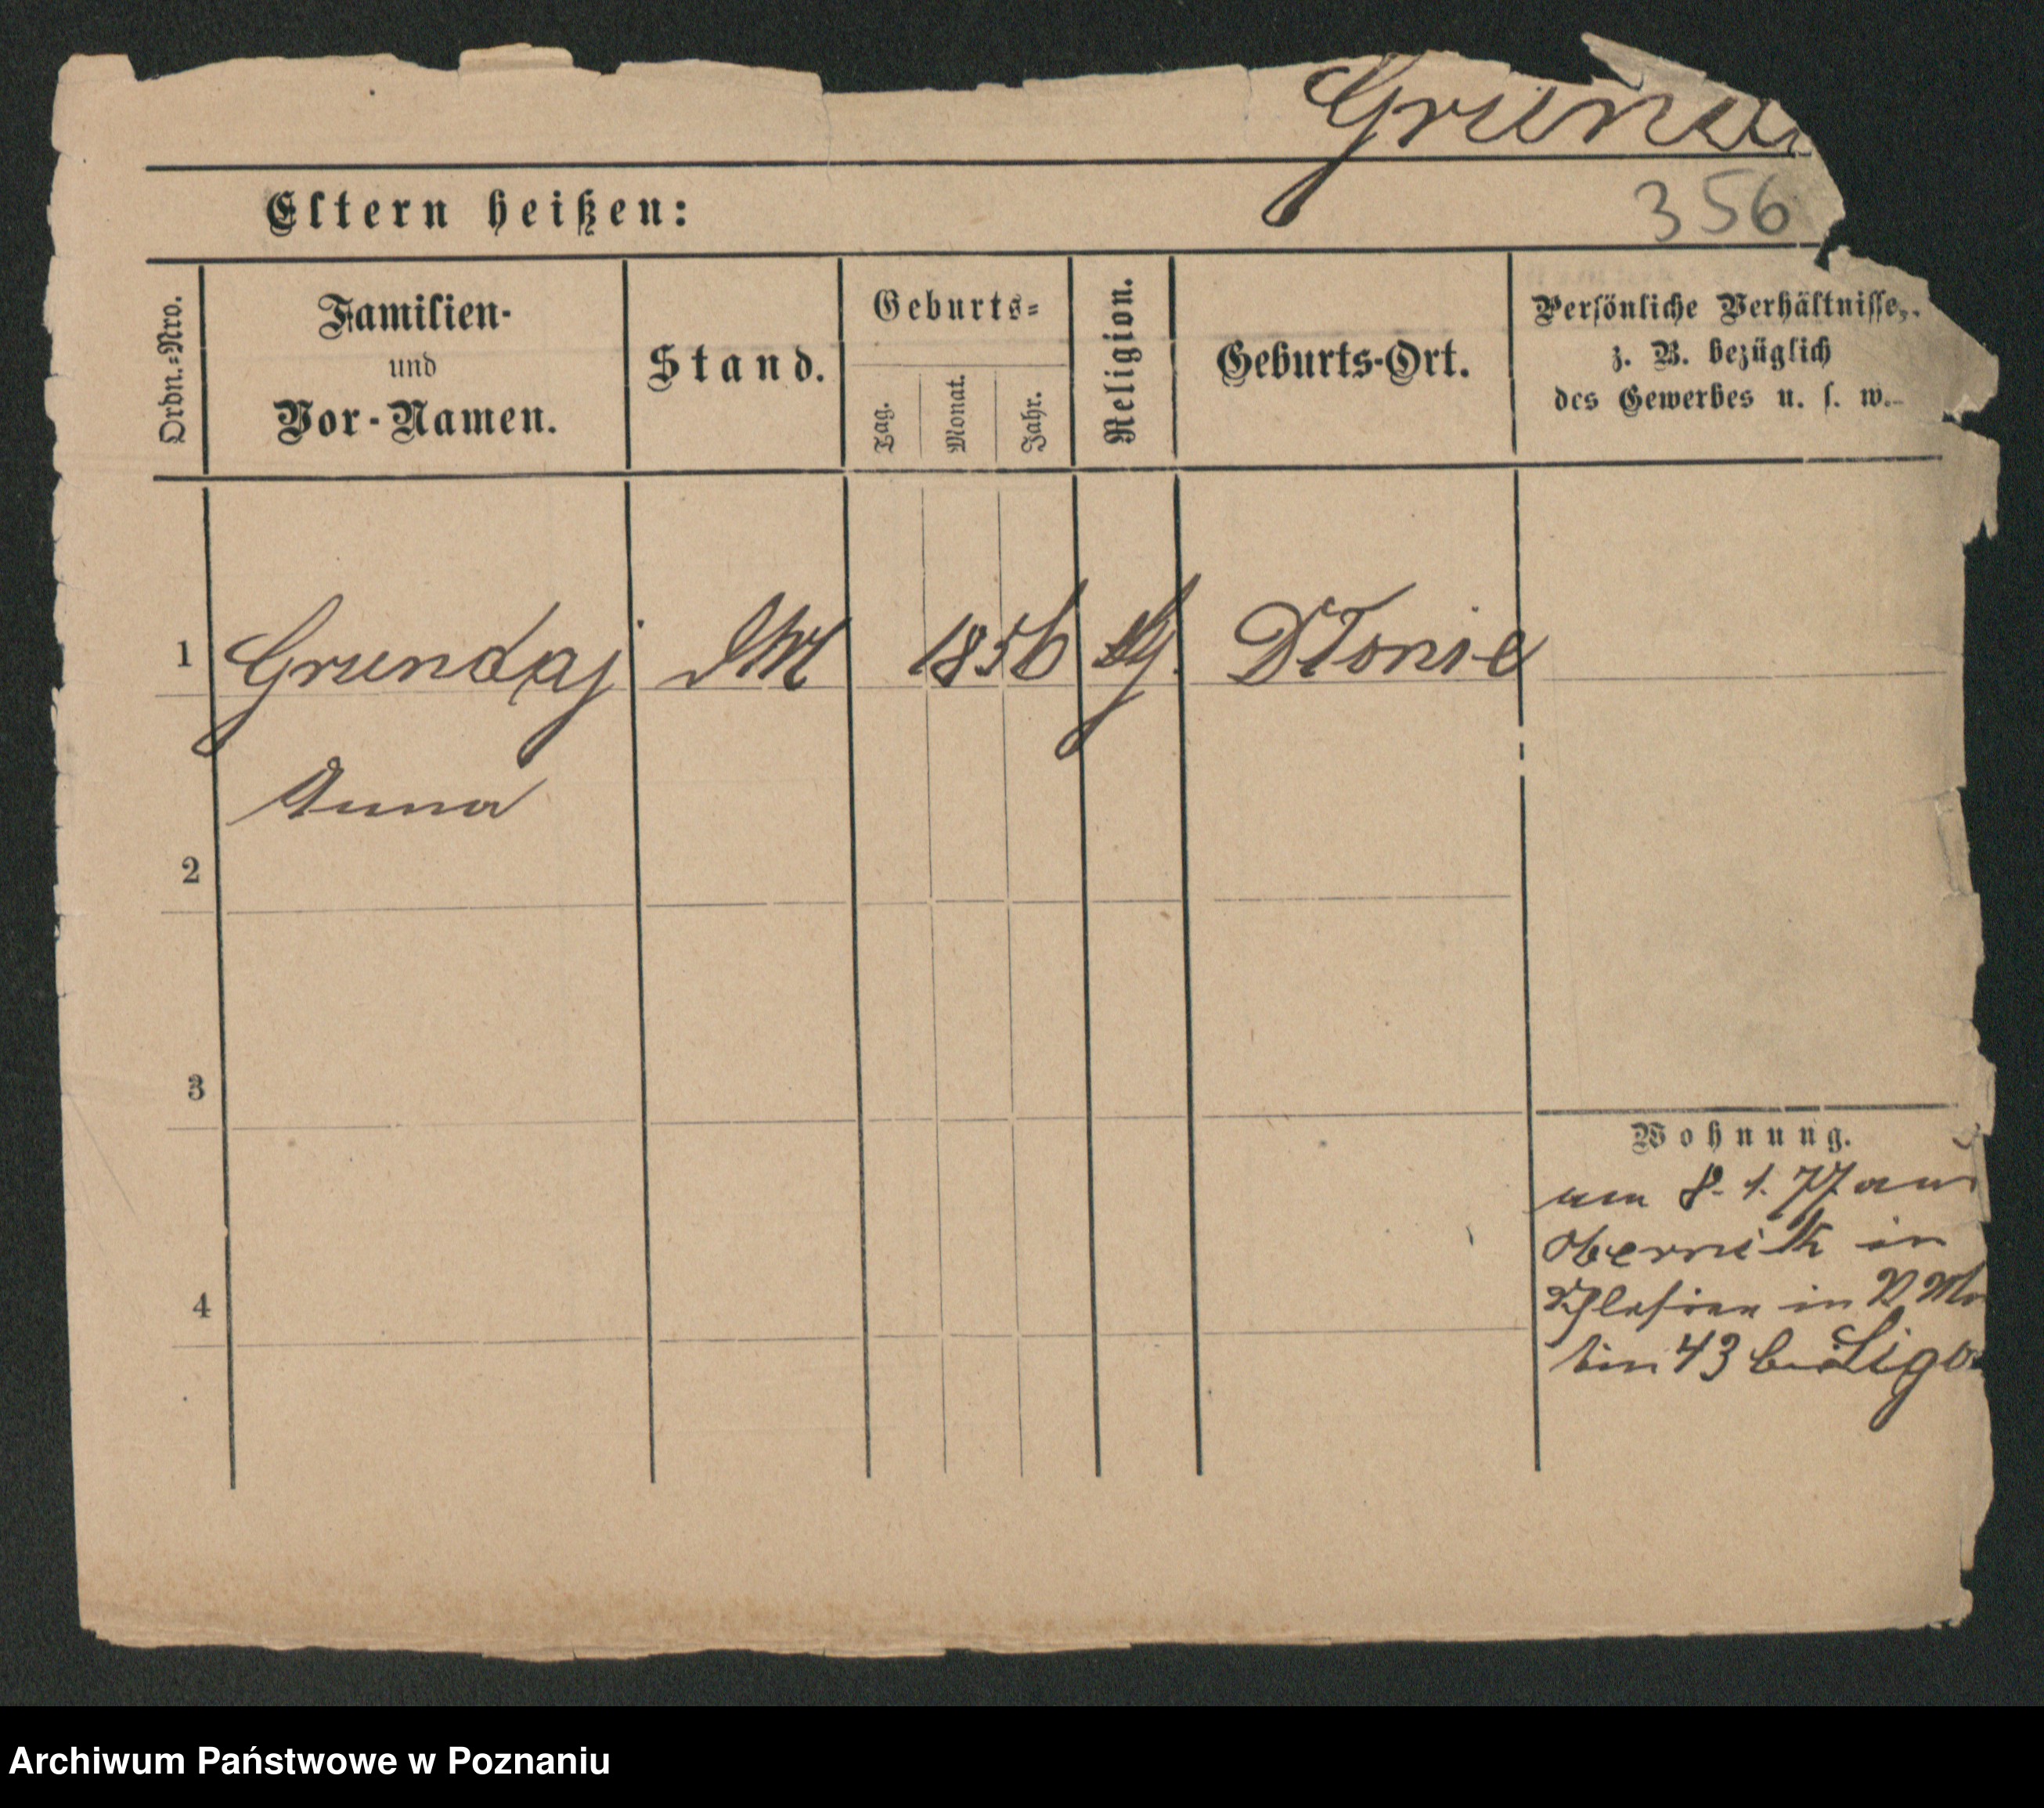 Grunda
356
Eltern heißen:
Ordn.=Nro.
Familien-
und
Vor-Namen.
Stand.
Geburts=
Tag.
Monat.
Jahr.
Religion.
Geburts-Ort.
Persönliche Verhältnisse,
z. B. bezüglich
des Gewerbes u. s. w.
1 Grundaj DM 1856 Dłonie
Anna
2
3
4
Wohnung.
am 8. 1. 77 aus
Obernik in
in
43 bei Ligo
Archiwum Państwowe w Poznaniu